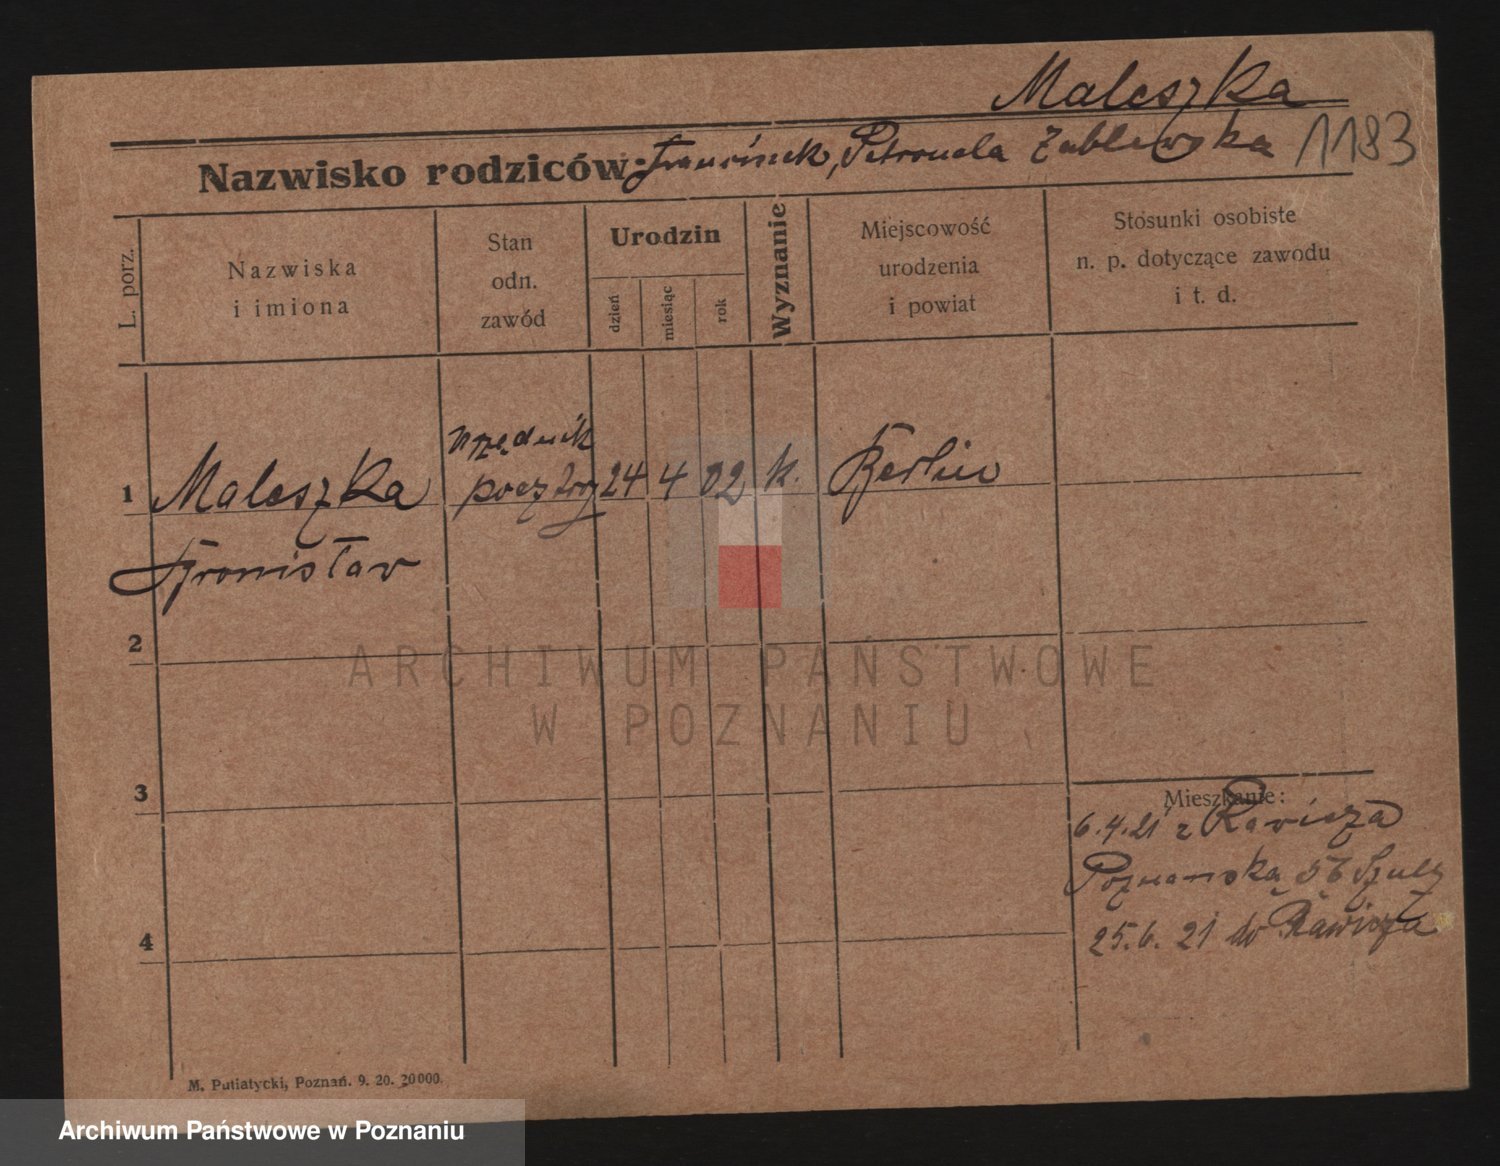 Maleszka
Nazwisko rodziców: Franciszek, Petronela Zablewska 1183
L. porz.
Nazwiska
i imiona
Stan
odn.
zawód
Urodzin
dzień
miesiąc
rok
Wyznanie
Miejscowość
urodzenia
i powiat
Stosunki osobiste
n. p. dotyczące zawodu
i t. d.
1 Maleszka urzędnik pocztowy 24 4 02 k. Berlin
Bronisław
2
ARCHIWUM PAŃSTWOWE
W POZNANIU
3
Mieszkanie:
6.4.21 z Rawicza
Poznańska 56
4
25.6.21 do Rawicza
M. Putiatycki, Poznań. 9. 20. 20000.
Archiwum Państwowe w Poznaniu